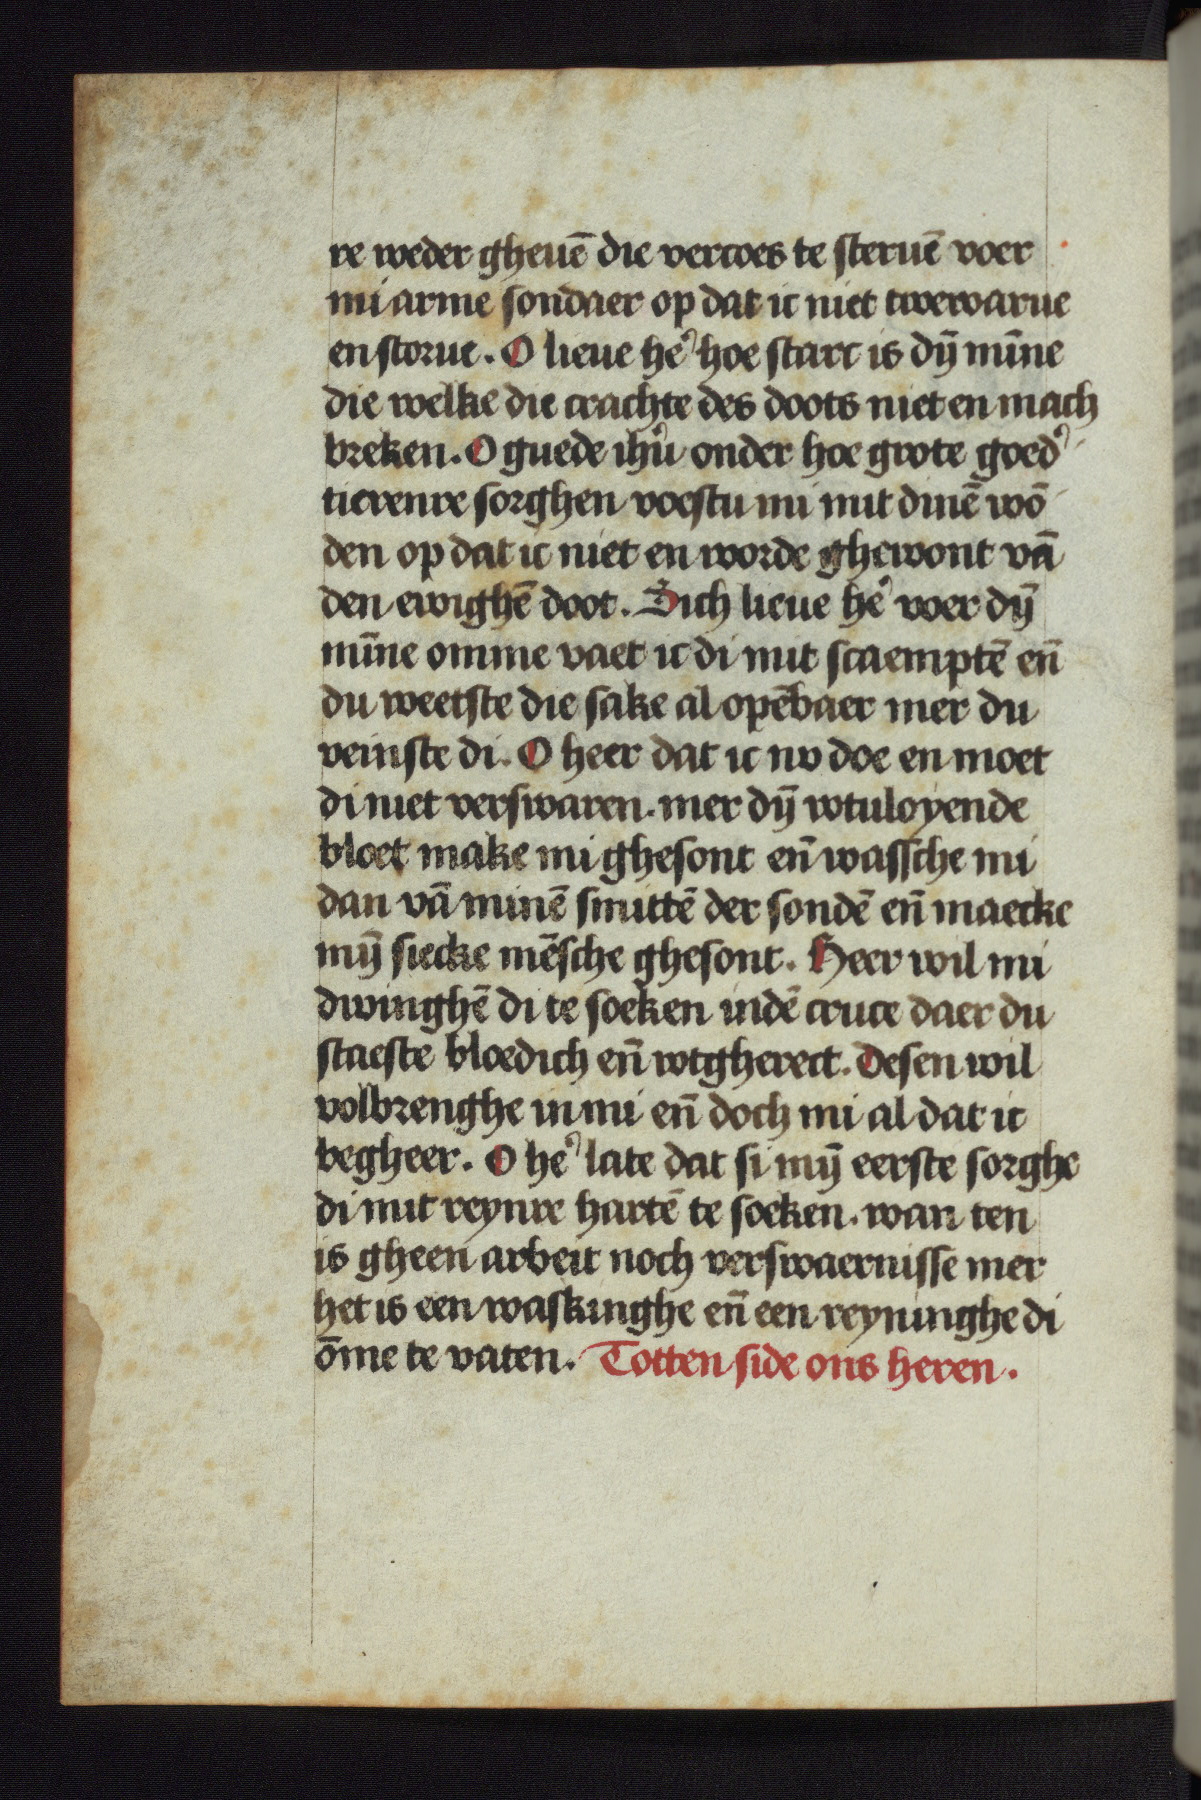 re weder gheuē die vercoes te steruē voer
mi arme sondaer op dat ic niet twewarue
en storue. O lieue he᷒ hoe starc is dȳ mīne
die welke die crachte des doots niet en mach
breken. O guede ihū onder hoe grote goed᷒
tierenre sorghen voestu mi mit dinē wō
den op dat ic niet en worde ghewont vā
den ewighē doot. Sich lieue he᷒ voer dȳ
mīne omme vaet ic di mit scaemptē en̄
du weetste die sake al opēbaer mer du
veinste di. O heer dat ic nv doe en moet
di niet verswaren. mer dȳ wtuloyende
bloet make mi ghesont en̄ wassche mi
dan vā minē smittē der sondē en̄ maecke
mȳ siecke mēsche ghesont. Heer wil mi
dwinghē di te soeken indē cruce daer du
staeste bloedich en̄ wtgherect. Desen wil
volbrenghe in mi en̄ doch mi al dat ic
begheer. O he᷒ late dat si mȳ eerste sorghe
di mit reynre hartē te soeken. wan ten
is gheen arbeit noch verswaernisse mer
het is een waskinghe en̄ een reyninghe di
ōme te vaten. Totten side ons heren.